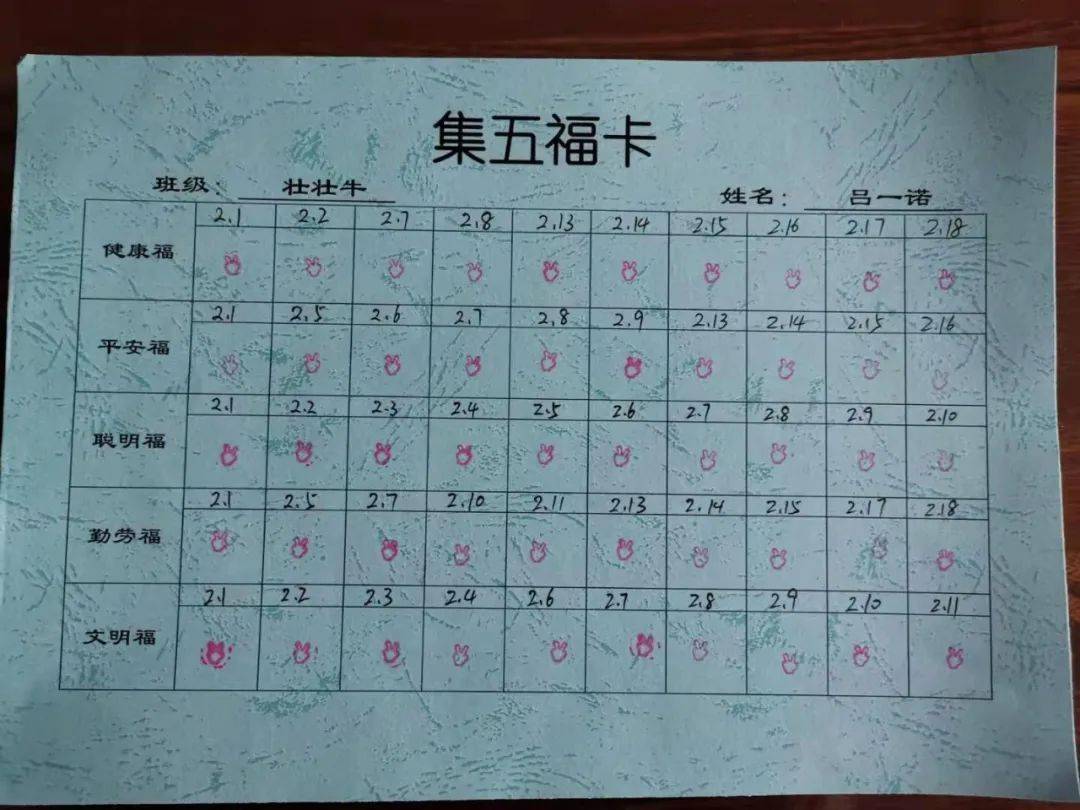 集五福卡
班级： 壮壮牛 姓名： 吕一诺
2.1 2.2 2.7 2.8 2.13 2.14 2.15 2.16 2.17 2.18
健康福
2.1 2.5 2.6 2.7 2.8 2.9 2.13 2.14 2.15 2.16
平安福
2.1 2.2 2.3 2.4 2.5 2.6 2.7 2.8 2.9 2.10
聪明福
2.1 2.5 2.7 2.10 2.11 2.13 2.14 2.15 2.17 2.18
勤劳福
2.1 2.2 2.3 2.4 2.6 2.7 2.8 2.9 2.10 2.11
文明福